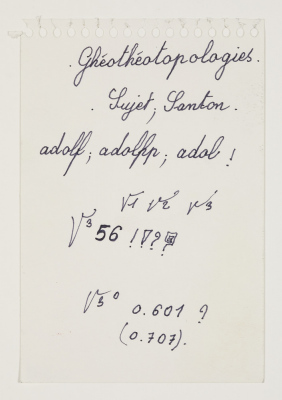 . Ghéothéotopologies.
. Sujet; Santon.
adolf; adolfp; adol !
√1 √2 √3
√3 56 ! ? ?
√3° 0.601 ?
(0.707).